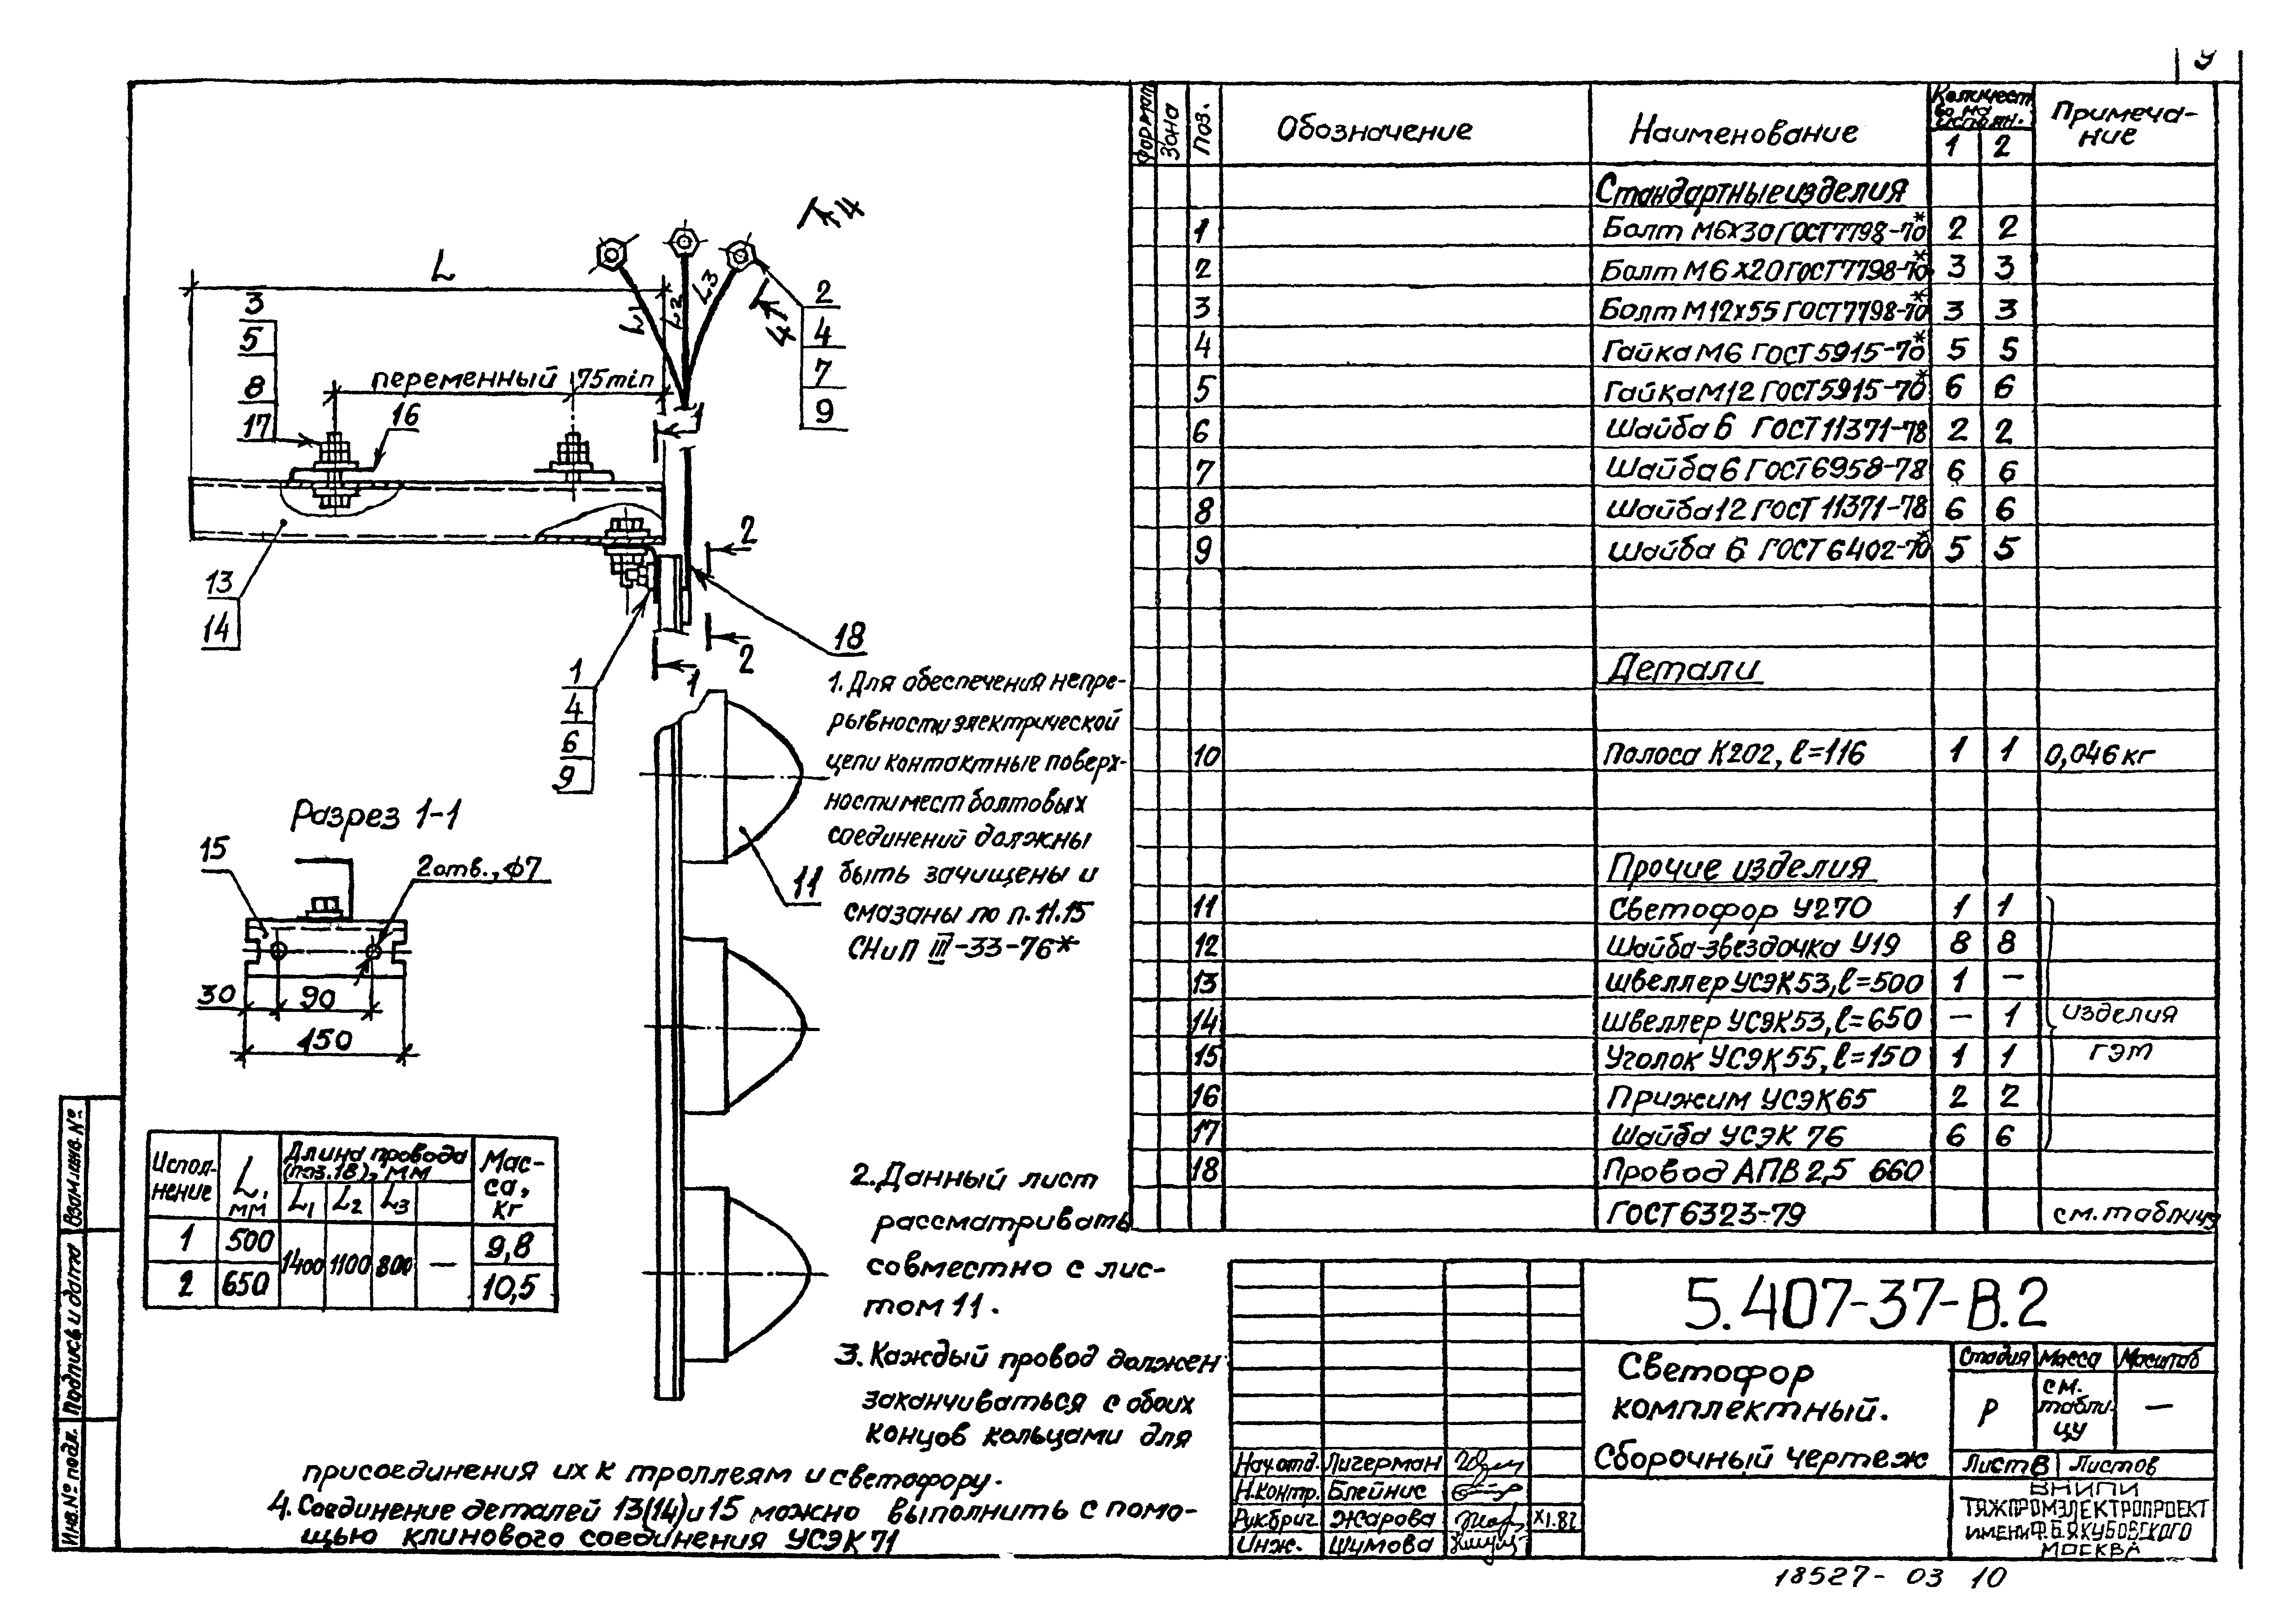 9
L
L1
L2
L3
4
4
2
4
7
9
3
5
8
17
16
переменный
75min
1
2
2
1
13
14
18
1
4
6
9
11
Разрез 1-1
15
2 отв., ϕ7
30
90
150
1. Для обеспечения непре-
рывности электрической
цепи контактные поверх-
ности мест болтовых
соединений должны
быть зачищены и
смазаны по п. 11.15
СНиП III-33-76*
2. Данный лист
рассматривать
совместно с лис-
том 11.
3. Каждый провод должен
заканчиваться с обоих
концов кольцами для
присоединения их к троллеям и светофору.
4. Соединение деталей 13(14) и 15 можно выполнить с помо-
щью клинового соединения УСЭК 71
Испол-
нение
L, мм
Длина провода
(поз.18), мм
Мас-
са,
кг
L1 L2 L3
1 500 1400 1100 800 — 9,8
2 650 10,5
Формат Зона Поз. Обозначение Наименование Количест-
во на
исполн. Примеча-
ние
1 2
Стандартные изделия
1 Болт М6х30 ГОСТ 7798-70* 2 2
2 Болт М6х20 ГОСТ 7798-70* 3 3
3 Болт М12х55 ГОСТ 7798-70* 3 3
4 Гайка М6 ГОСТ 5915-70* 5 5
5 Гайка М12 ГОСТ 5915-70* 6 6
6 Шайба 6 ГОСТ 11371-78 2 2
7 Шайба 6 ГОСТ 6958-78 6 6
8 Шайба 12 ГОСТ 11371-78 6 6
9 Шайба 6 ГОСТ 6402-70* 5 5
Детали
10 Полоса К202, ℓ=116 1 1 0,046 кг
Прочие изделия
11 Светофор У270 1 1
12 Шайба-звездочка У19 8 8
13 Швеллер УСЭК 53, ℓ=500 1 —
14 Швеллер УСЭК 53, ℓ=650 — 1 изделия
15 Уголок УСЭК 55, ℓ=150 1 1 ГЭМ
16 Прижим УСЭК 65 2 2
17 Шайба УСЭК 76 6 6
18 Провод АПВ 2,5 660
ГОСТ 6323-79 см. таблицу
5.407-37-В.2
Светофор
комплектный.
Сборочный чертеж
Стадия Масса Масштаб
Р см.
табли-
цу —
Лист 8 Листов
ВНИПИ
ТЯЖПРОМЭЛЕКТРОПРОЕКТ
ИМЕНИ Ф.Б.ЯКУБОВСКОГО
МОСКВА
Нач.отд. Лигерман
Н.контр. Блейнис
Рук.бриг. Жарова XI.82
Инж. Шумова
Взам.инв.№
Подпись и дата
Инв.№ подл.
18527-03 10